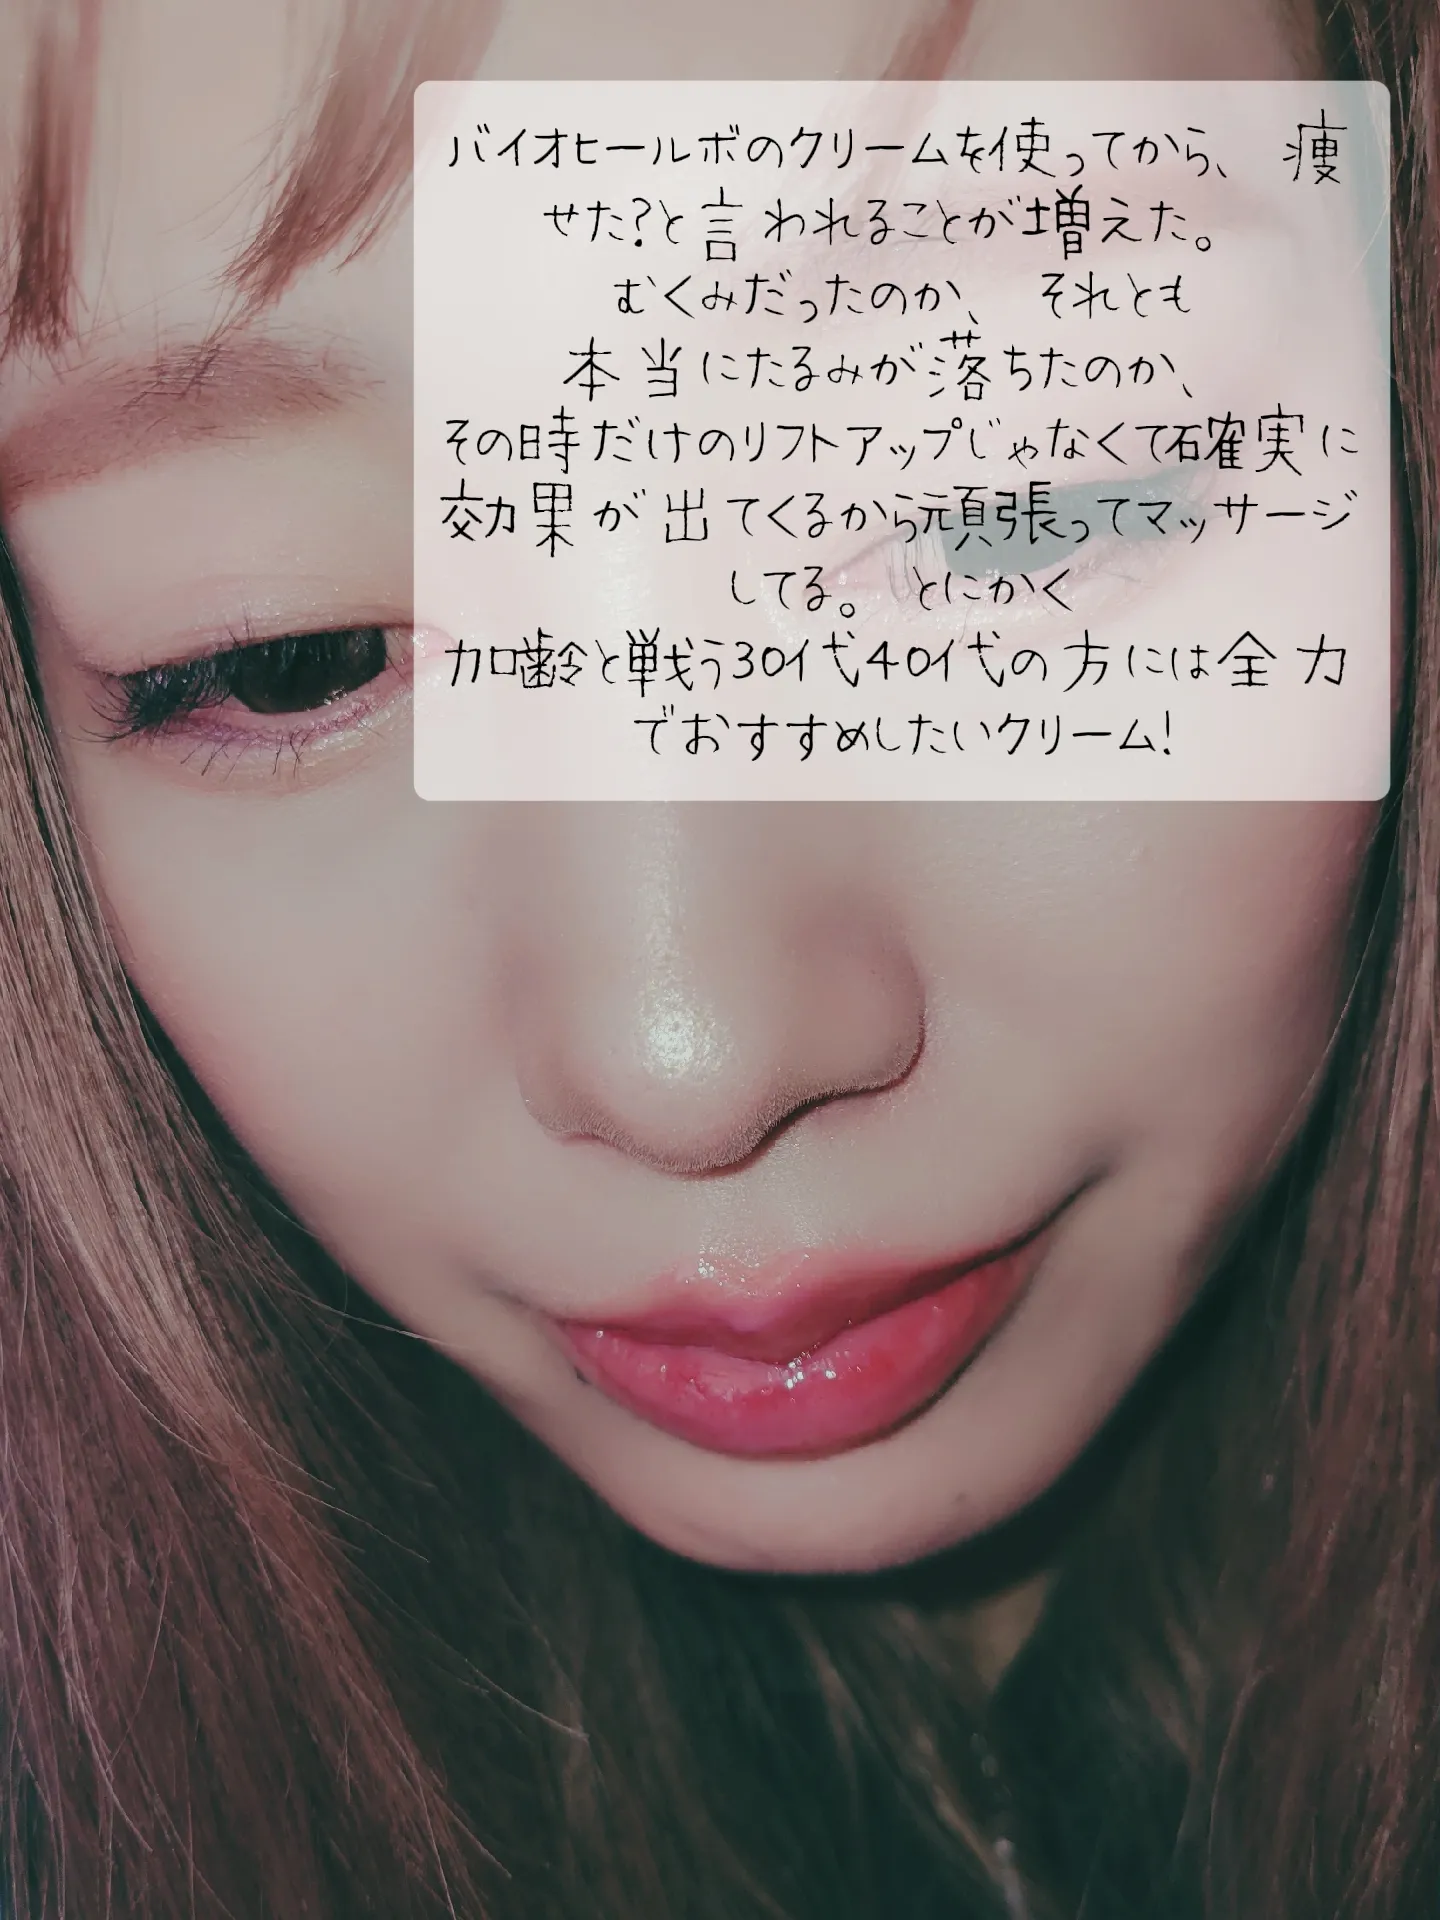 バイオヒールボのクリームを使ってから、痩
せた?と言われることが増えた。
むくみだったのか、それとも
本当にたるみが落ちたのか、
その時だけのリフトアップじゃなくて確実に
効果が出てくるから頑張ってマッサージ
してる。とにかく
加齢と戦う30代40代の方には全力
でおすすめしたいクリーム!